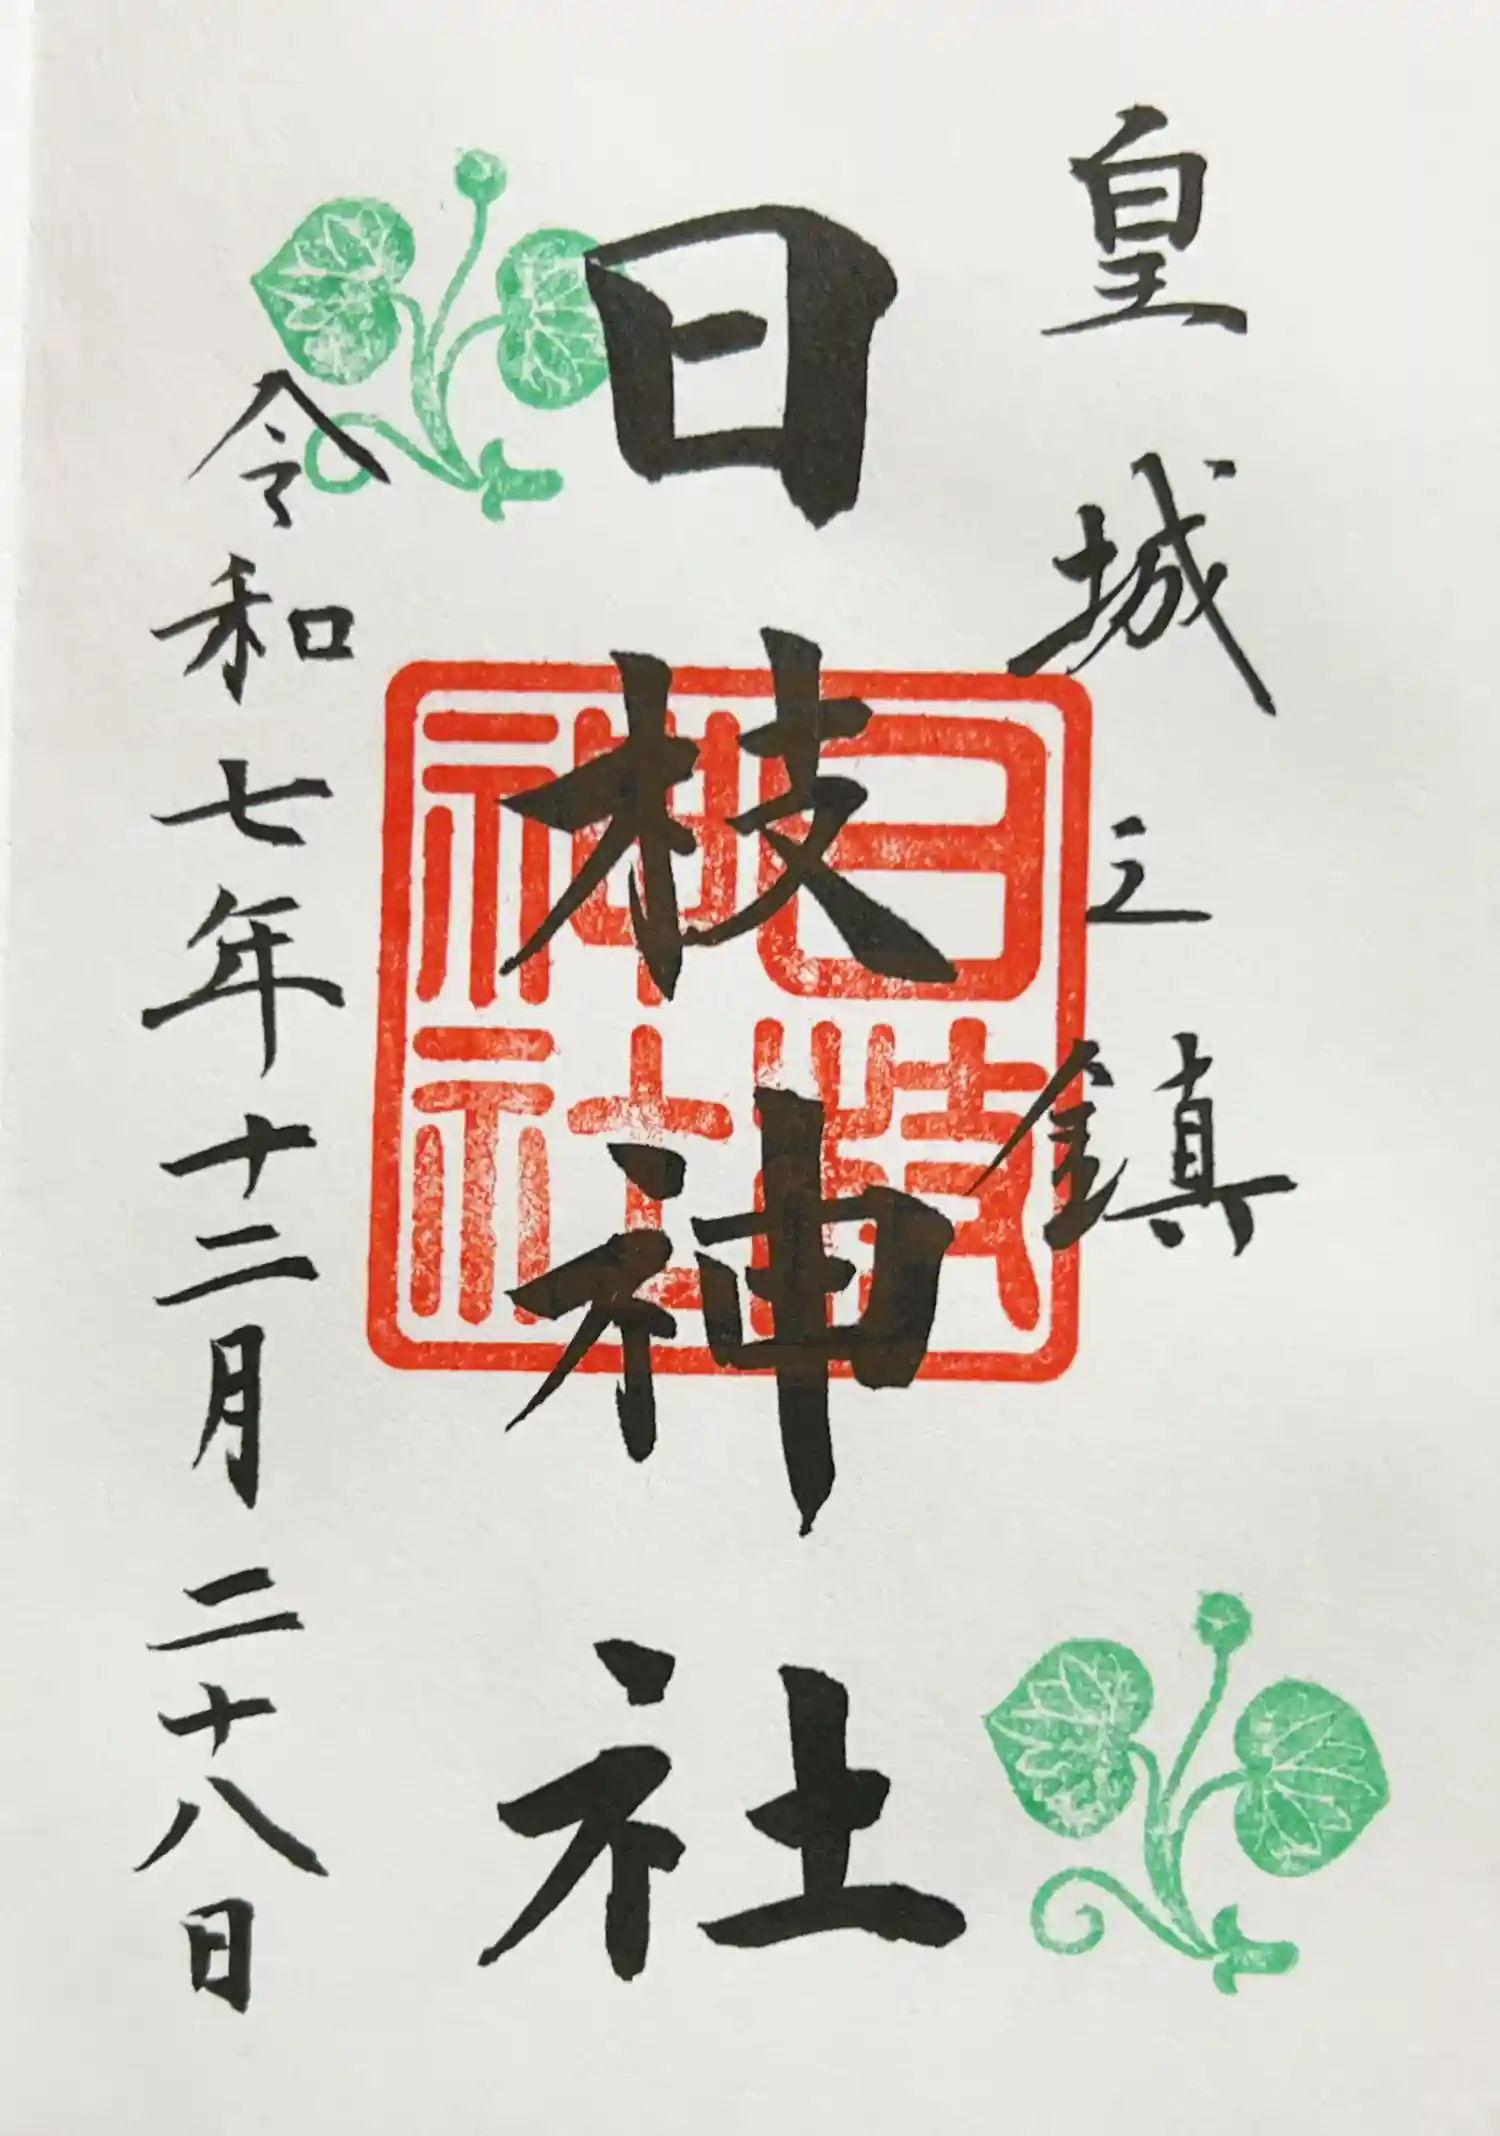 皇城之鎮
日枝神社
日枝神社
令和七年十二月二十八日